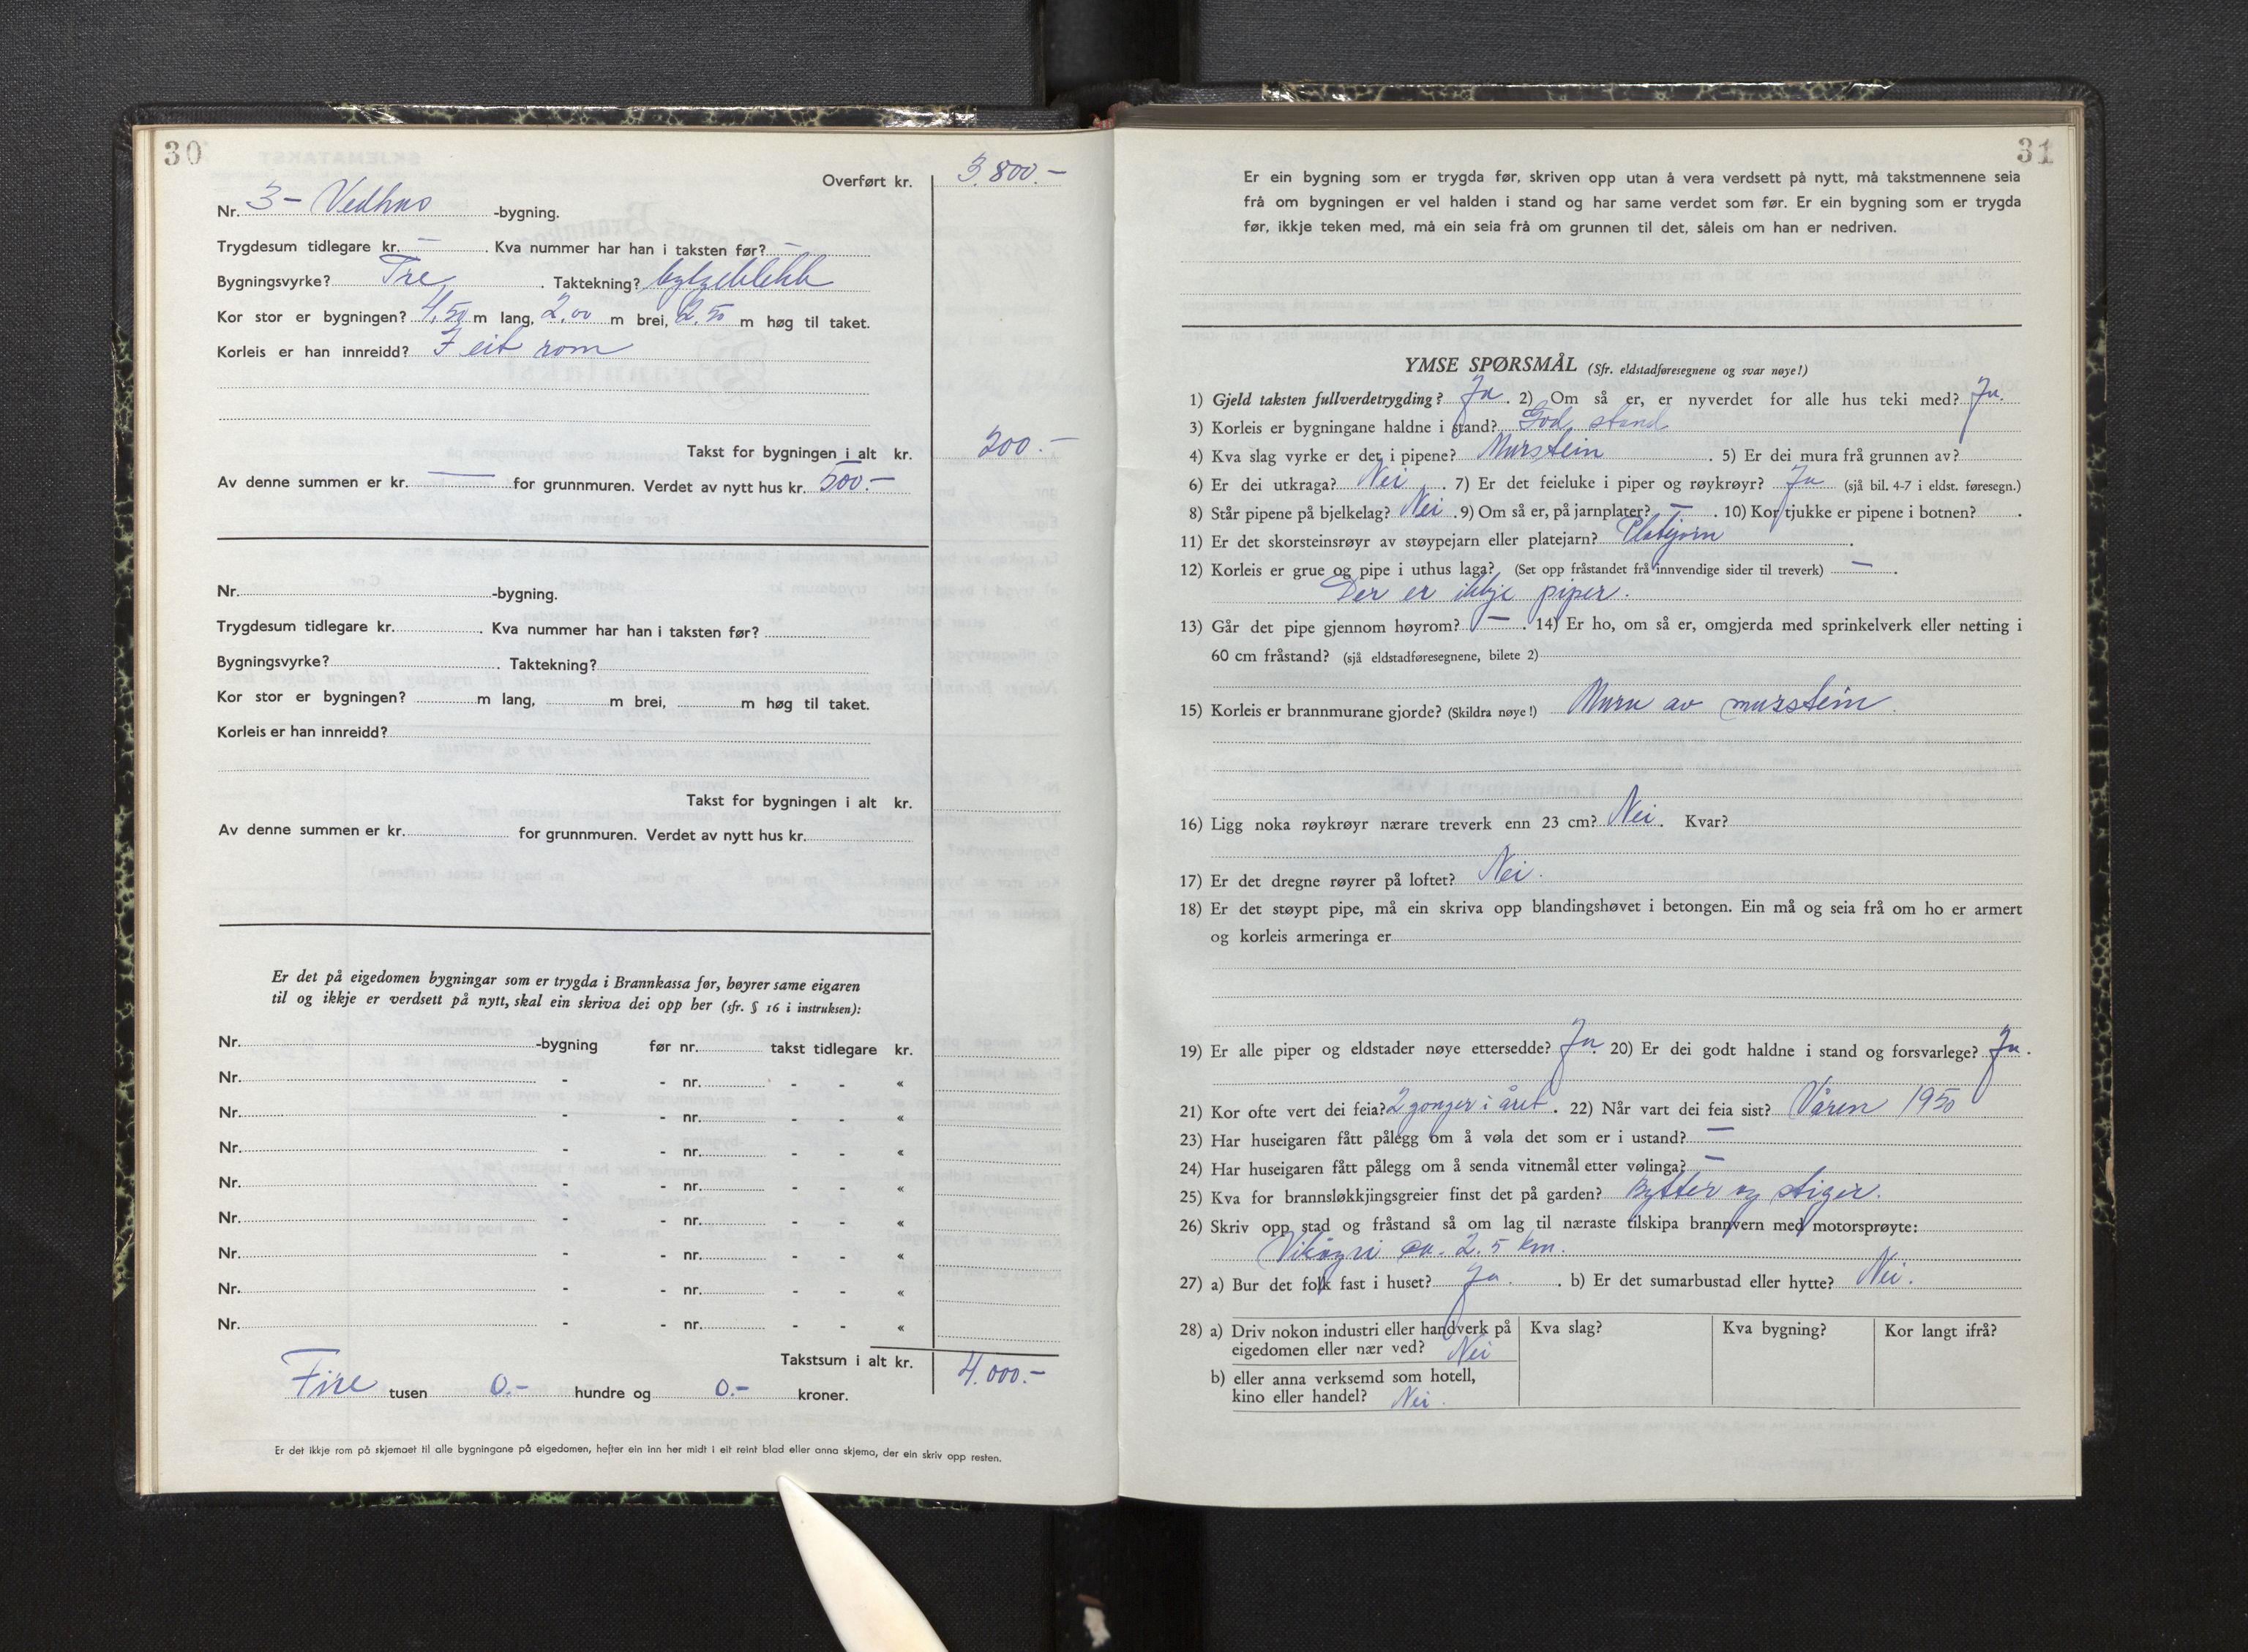 30
Overført kr. 3.800.-
Nr. 3- Vedhus -bygning.
Trygdesum tidlegare kr. - . Kva nummer har han i taksten før? -
Bygningsvyrke? Tre . Taktekning? bylgeblekk
Kor stor er bygningen? 4,50 m lang, 2,00 m brei, 2,50 m høg til taket.
Korleis er han innreidd? I eit rom
Takst for bygningen i alt kr. 200.-
Av denne summen er kr. — for grunnmuren. Verdet av nytt hus kr. 500.-
Nr. -bygning.
Trygdesum tidlegare kr. . Kva nummer har han i taksten før?
Bygningsvyrke? . Taktekning?
Kor stor er bygningen? m lang, m brei, m høg til taket.
Korleis er han innreidd?
Takst for bygningen i alt kr.
Av denne summen er kr. for grunnmuren. Verdet av nytt hus kr.
Er det på eigedomen bygningar som er trygda i Brannkassa før, høyrer same eigaren
til og ikkje er verdsett på nytt, skal ein skriva dei opp her (sfr. § 16 i instruksen):
Nr. -bygning før nr. takst tidlegare kr.
Nr. - - nr. - - «
Nr. - - nr. - - «
Nr. - - nr. - - «
Nr. - - nr. - - «
Nr. - - nr. - - «
Nr. - - nr. - - «
Nr. - - nr. - - «
Nr. - - nr. - - «
Takstsum i alt kr. 4.000.-
Fire tusen 0.- hundre og 0.- kroner.
Er det ikkje rom på skjemaet til alle bygningane på eigedomen, hefter ein inn her midt i eit reint blad eller anna skjema, der ein skriv opp resten.
31
Er ein bygning som er trygda før, skriven opp utan å vera verdsett på nytt, må takstmennene seia
frå om bygningen er vel halden i stand og har same verdet som før. Er ein bygning som er trygda
før, ikkje teken med, må ein seia frå om grunnen til det, såleis om han er nedriven.
YMSE SPØRSMÅL (Sfr. eldstadføresegnene og svar nøye!)
1) Gjeld taksten fullverdetrygding? Ja . 2) Om så er, er nyverdet for alle hus teki med? Ja.
3) Korleis er bygningane haldne i stand? God stand
4) Kva slag vyrke er det i pipene? Murstein . 5) Er dei mura frå grunnen av?
6) Er dei utkraga? Nei . 7) Er det feieluke i piper og røykrøyr? Ja (sjå bil. 4-7 i eldst. føresegn.)
8) Står pipene på bjelkelag? Nei . 9) Om så er, på jarnplater? - . 10) Kor tjukke er pipene i botnen? .
11) Er det skorsteinsrøyr av støypejarn eller platejarn? Platejarn .
12) Korleis er grue og pipe i uthus laga? (Set opp fråstandet frå innvendige sider til treverk) - .
Der er ikkje piper.
13) Går det pipe gjennom høyrom? - . 14) Er ho, om så er, omgjerda med sprinkelverk eller netting i
60 cm fråstand? (sjå eldstadføresegnene, bilete 2)
15) Korleis er brannmurane gjorde? (Skildra nøye!) Mura av murstein.
16) Ligg noka røykrøyr nærare treverk enn 23 cm? Nei . Kvar?
17) Er det dregne røyrer på loftet? Nei.
18) Er det støypt pipe, må ein skriva opp blandingshøvet i betongen. Ein må og seia frå om ho er armert
og korleis armeringa er
19) Er alle piper og eldstader nøye ettersedde? Ja. 20) Er dei godt haldne i stand og forsvarlege? Ja.
21) Kor ofte vert dei feia? 2 gonger i året . 22) Når vart dei feia sist? Våren 1950
23) Har huseigaren fått pålegg om å vøla det som er i ustand? -
24) Har huseigaren fått pålegg om å senda vitnemål etter vølinga? -
25) Kva for brannsløkkjingsgreier finst det på garden? Bytter og stiger.
26) Skriv opp stad og fråstand så om lag til næraste tilskipa brannvern med motorsprøyte:
Vikøyri ca. 2.5 km.
27) a) Bur det folk fast i huset? Ja. . b) Er det sumarbustad eller hytte? Nei.
28) a) Driv nokon industri eller handverk på Kva slag? Kva bygning? Kor langt ifrå?
eigedomen eller nær ved? Nei
b) eller anna verksemd som hotell,
kino eller handel? Nei.